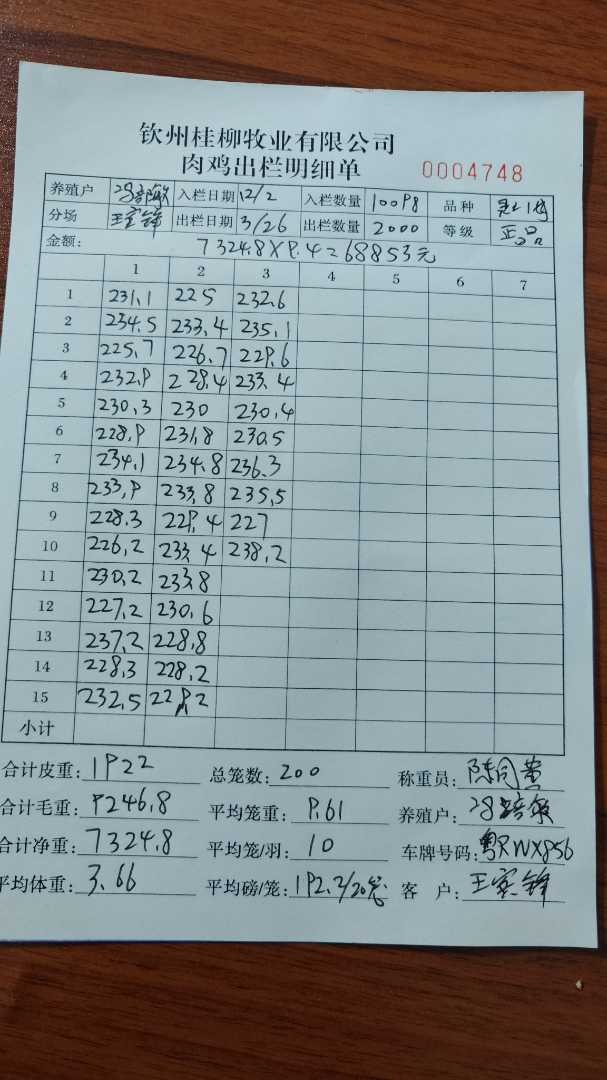 钦州桂柳牧业有限公司
肉鸡出栏明细单 0004748
养殖户 入栏日期 12/2 入栏数量 10098 品种
分场 王宝锋 出栏日期 3/26 出栏数量 2000 等级 正品
金额: 7324.8×9.4=68853元
1 2 3 4 5 6 7
1 231.1 225 232.6
2 234.5 233.4 235.1
3 225.7 226.7 229.6
4 232.9 228.4 233.4
5 230.3 230 230.4
6 228.9 231.8 230.5
7 234.1 234.8 236.3
8 233.9 233.8 235.5
9 228.3 229.4 227
10 226.2 233.4 238.2
11 230.2 233.8
12 227.2 230.6
13 237.2 228.8
14 228.3 228.2
15 232.5 229.2
小计
合计皮重: 1922 总笼数: 200 称重员: 陈同贵
合计毛重: 9246.8 平均笼重: 9.61 养殖户:
合计净重: 7324.8 平均笼/羽: 10 车牌号码: 粤RWX856
平均体重: 3.66 平均磅/笼: 192.2/20笼 客户: 王宝锋